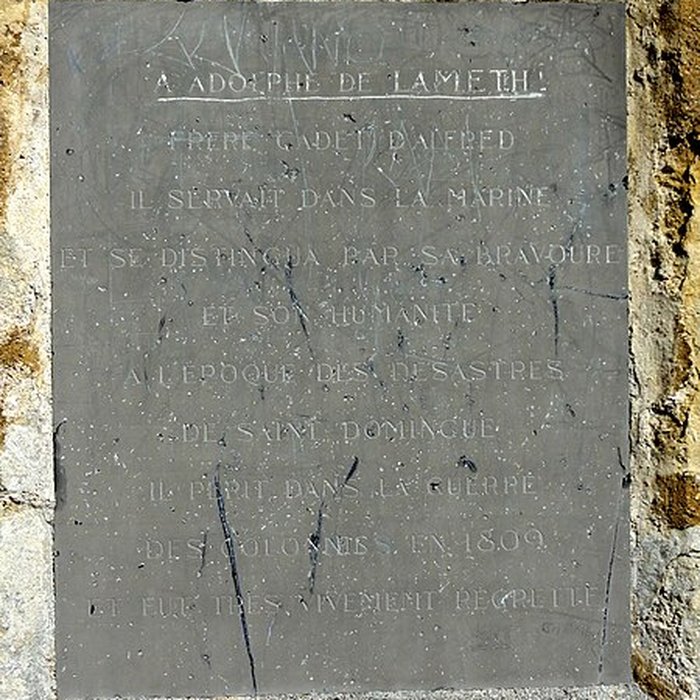 A ADOLPHE DE LAMETH!
FRERE CADET D'ALFRED
IL SERVAIT DANS LA MARINE
ET SE DISTINGUA PAR SA BRAVOURE
ET SON HUMANITE
A L'EPOQUE DES DESASTRES
DE SAINT DOMINGUE
IL PERIT DANS LA GUERRE
DES COLONNIES EN 1809
ET FUT TRES VIVEMENT REGRETTE